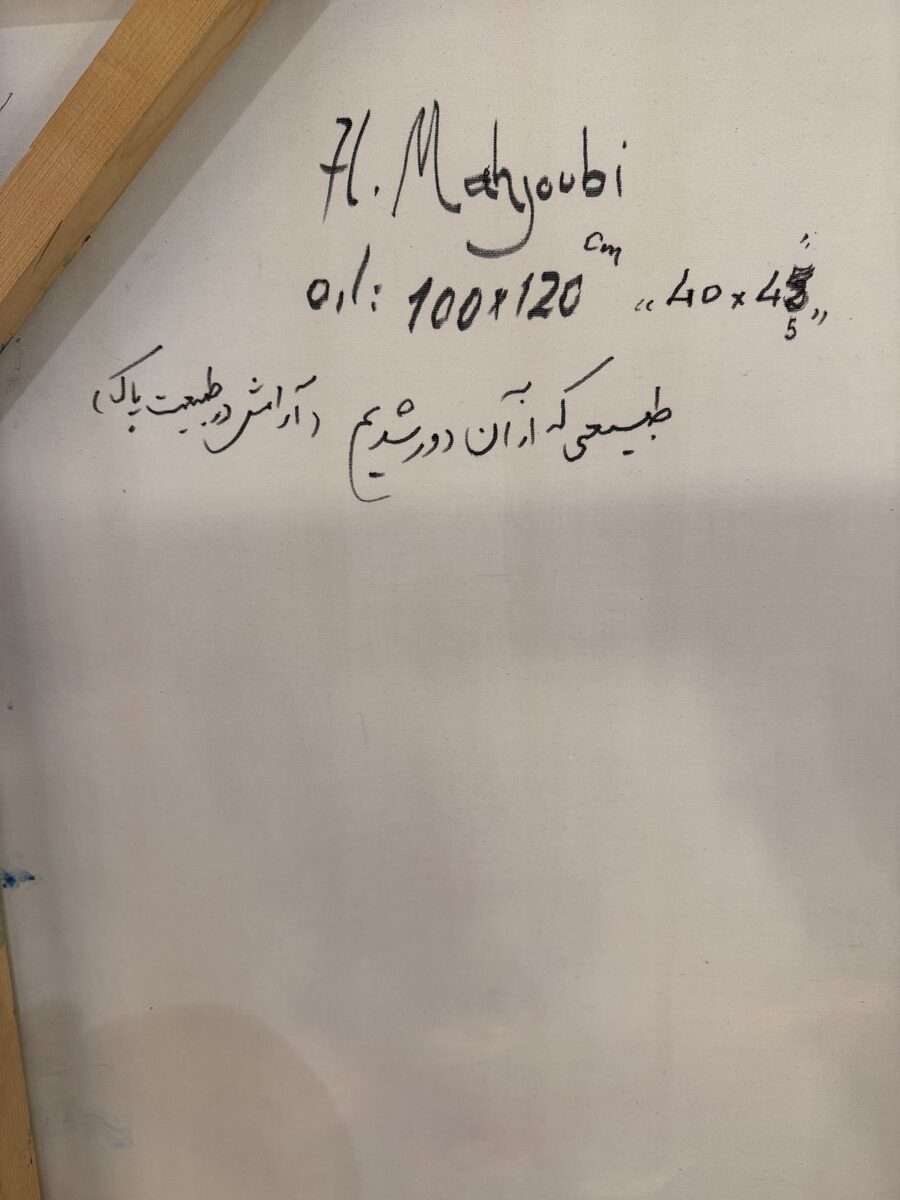 H. Mahjoubi
oil: 100x120 cm "40x45"
طبیعتی که از آن دور شدیم (آرامش در طبیعت پاک)